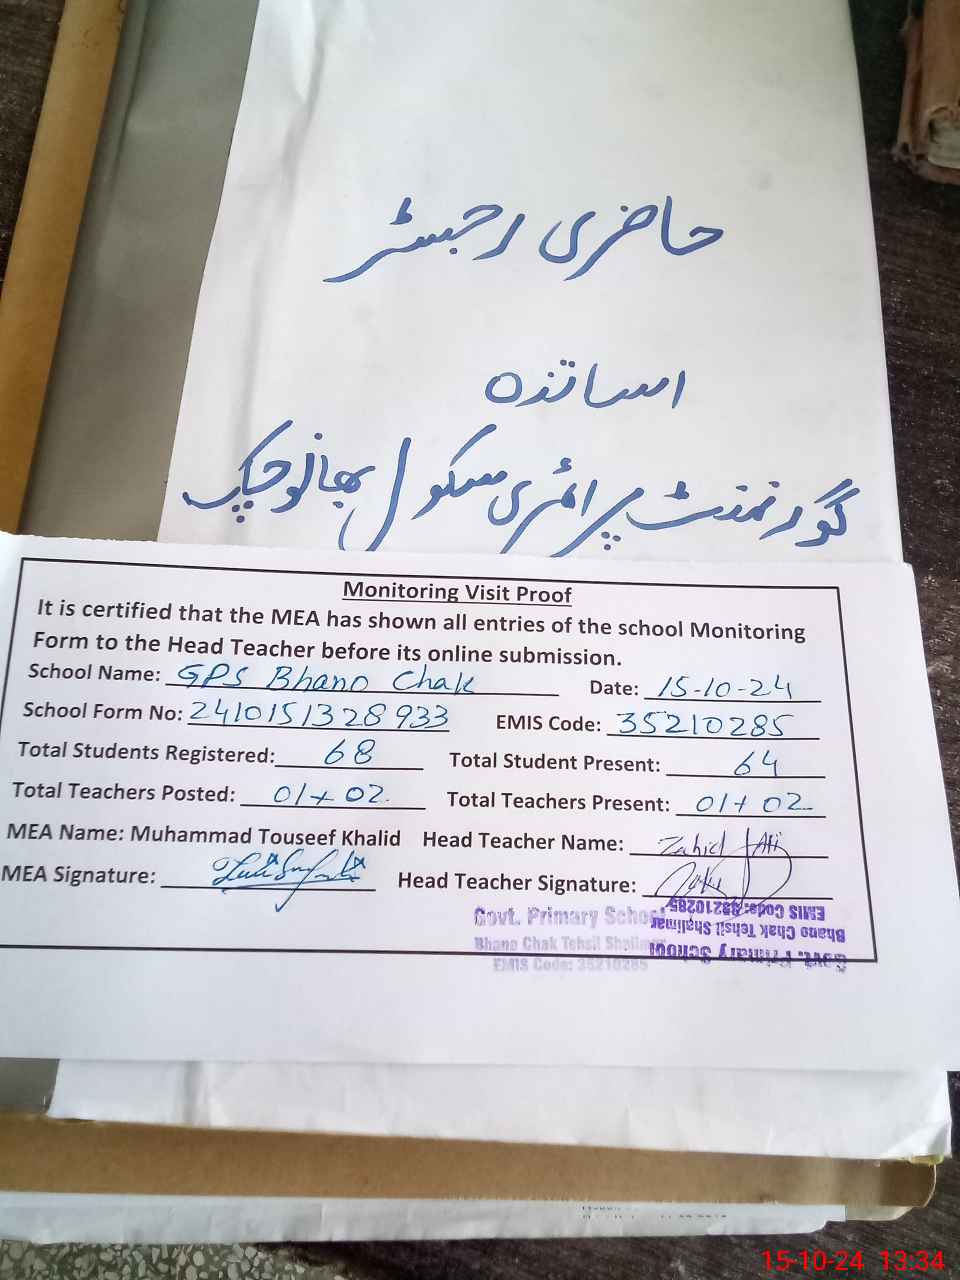 حاضری رجسٹر
اساتذہ
گورنمنٹ پرائمری سکول بھانوچک
Monitoring Visit Proof
It is certified that the MEA has shown all entries of the school Monitoring
Form to the Head Teacher before its online submission.
School Name: GPS Bhano Chak Date: 15-10-24
School Form No: 2410151328933 EMIS Code: 35210285
Total Students Registered: 68 Total Student Present: 64
Total Teachers Posted: 01+02 Total Teachers Present: 01+02
MEA Name: Muhammad Touseef Khalid Head Teacher Name: Zahid Ali
MEA Signature: Head Teacher Signature:
Govt. Primary School
Bhano Chak Tehsil Shalimar
EMIS Code: 35210285
Govt. Primary School
Bhano Chak Tehsil Shalimar
EMIS Code: 35210285
15-10-24 13:34